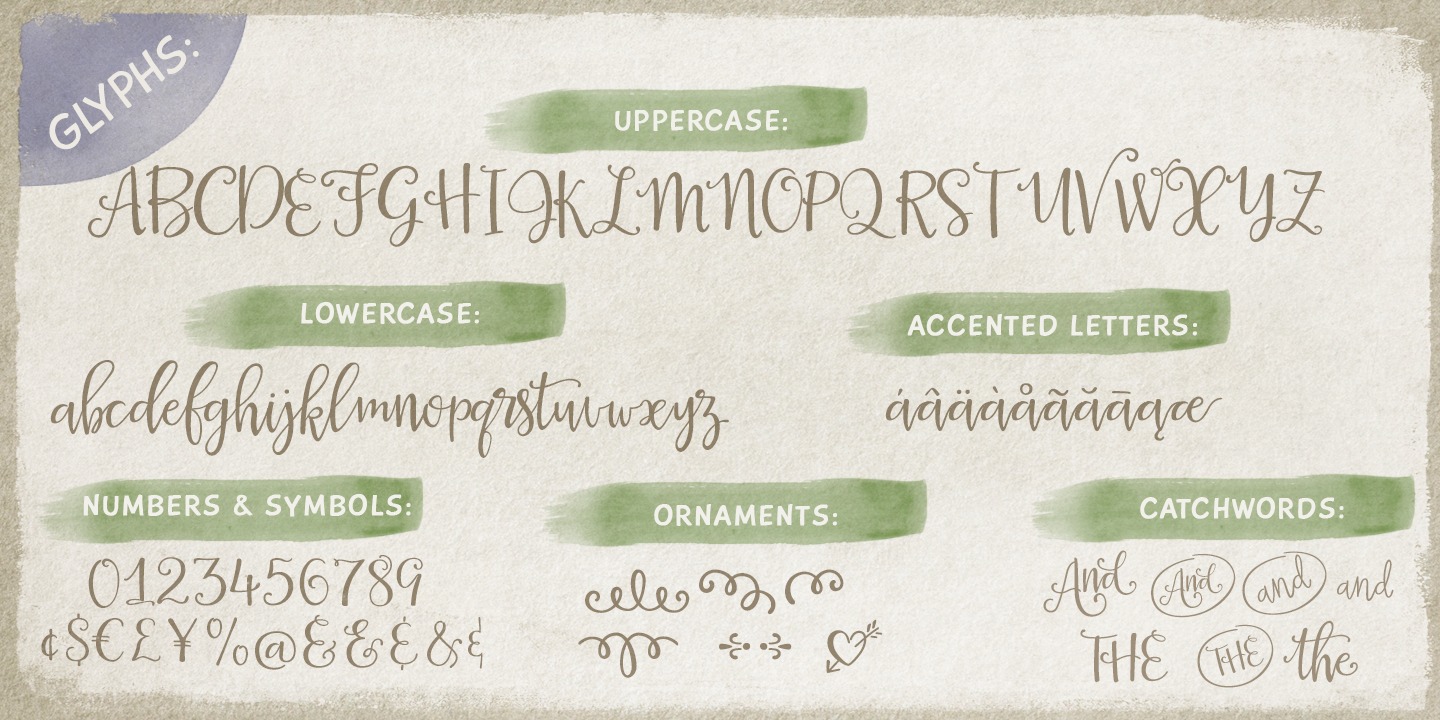 GLYPHS:
UPPERCASE:
ABCDEFGHIJKLMNOPQRSTUVWXYZ
LOWERCASE:
abcdefghijklmnopqrstuvwxyz
ACCENTED LETTERS:
áâäàåãăāąæ
NUMBERS & SYMBOLS:
0123456789
¢$€£¥%@&&&&&
ORNAMENTS:
CATCHWORDS:
And And and and
THE THE the